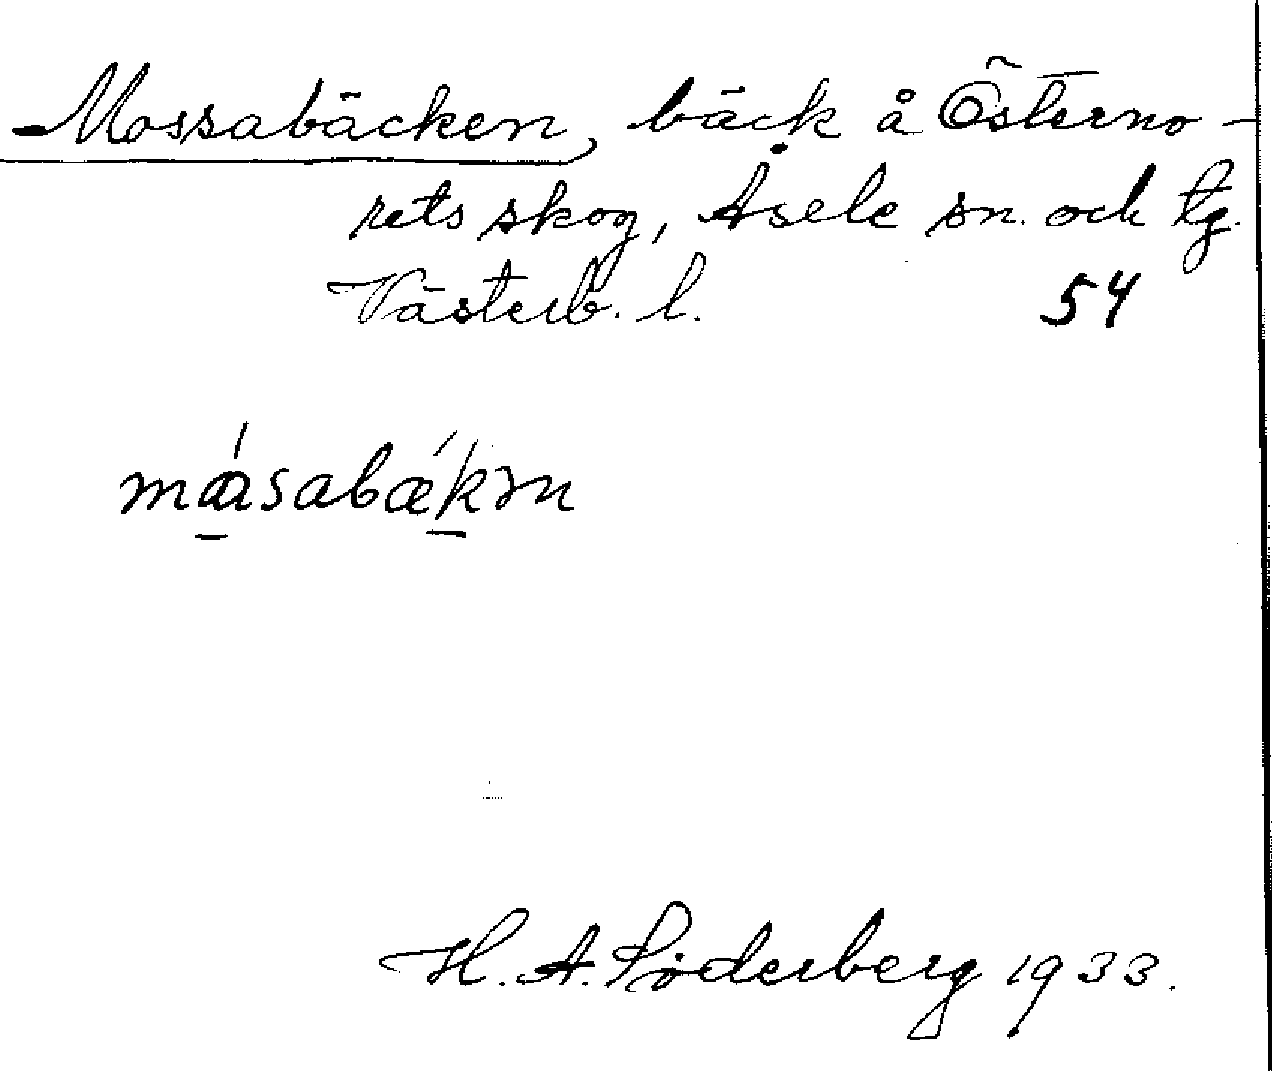 Mossabäcken, bäck å Österno-
rets skog, Åsele sn. och tg.
Västerb. l. 54
måsabäkɘn
H. A. Söderberg 1933.